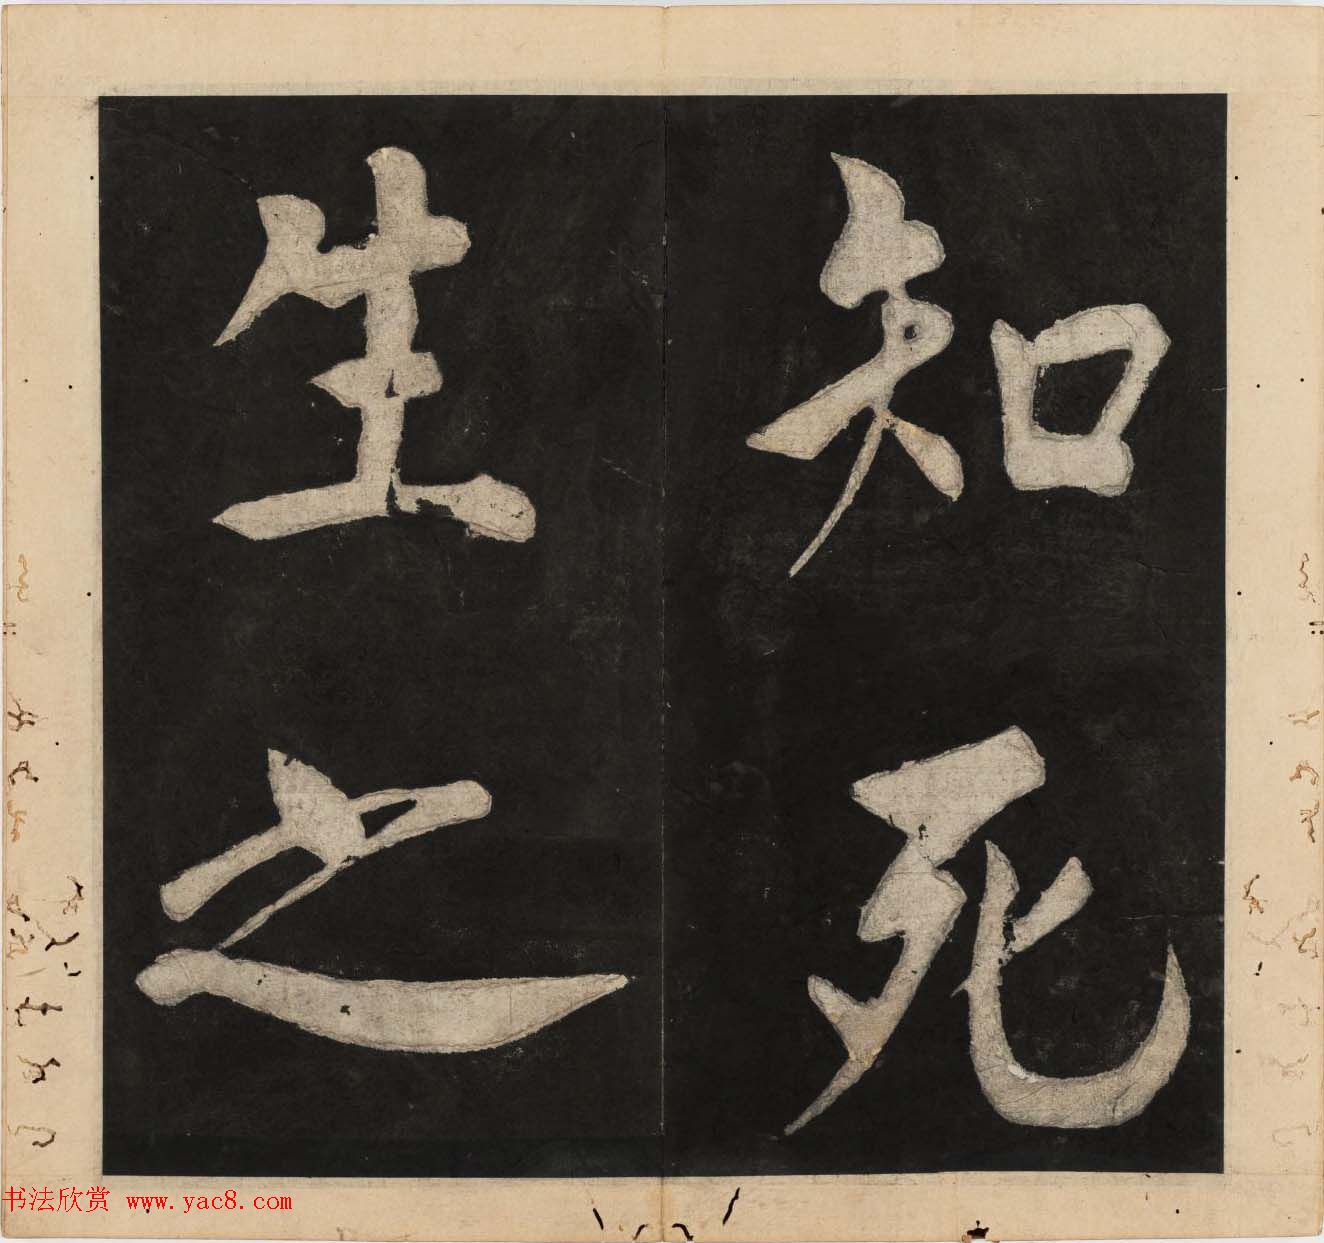 知死
生之
书法欣赏 www.yac8.com